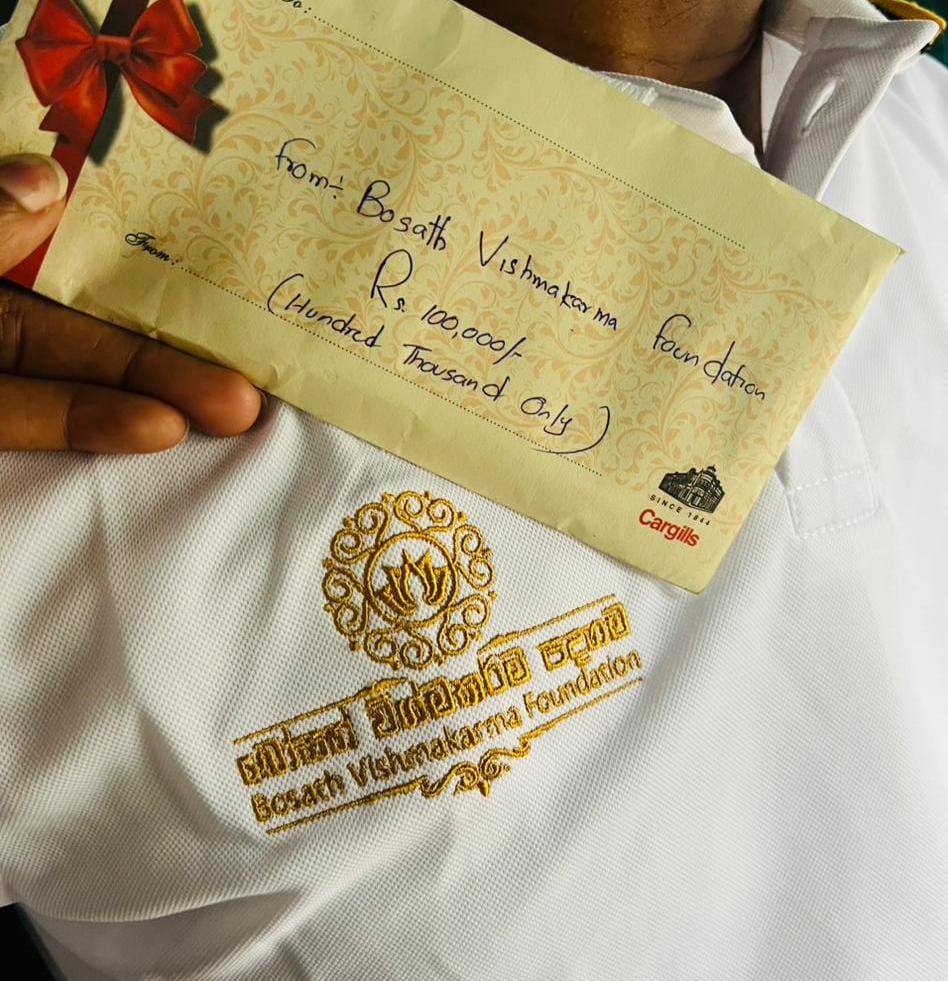 To:
From:- Bosath Vishmakarma Foundation
Rs. 100,000/-
(Hundred Thousand Only)
From:
SINCE 1844
Cargills
බෝසත් විශ්මකර්ම පදනම
Bosath Vishmakarma Foundation